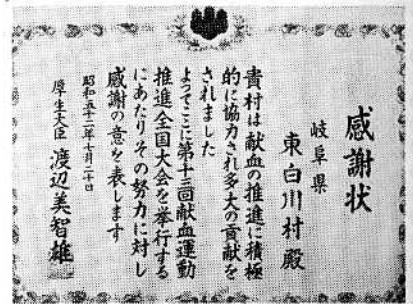 感謝状
岐阜県
東白川村殿
貴村は献血の推進に積極
的に協力され多大の貢献を
されました
よってここに第十三回献血運動
推進全国大会を挙行する
にあたりその努力に対し
感謝の意を表します
昭和五十二年七月二十日
厚生大臣 渡辺美智雄